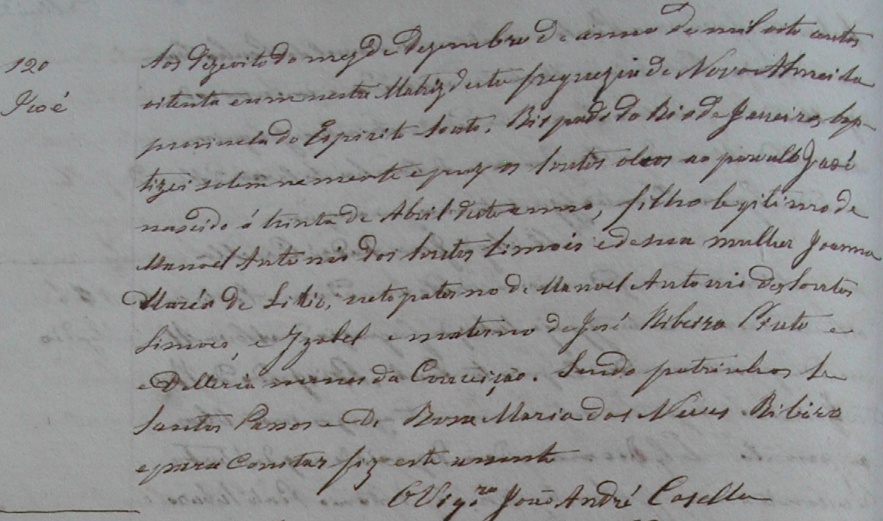 120
José
Aos dezoito do mez de Dezembro de anno de mil oito centos
oitenta e um nesta Matriz desta freguezia de Nova Almeida
provincia do Espirito Santo, Bispado do Rio de Janeiro, bap-
tizei solemnemente e puz os Santos oleos ao parvulo José
nascido á trinta de Abril deste anno, filho legitimo de
Manoel Antonio dos Santos Simois e de sua mulher Joanna
Maria de, neto paterno de Manoel Antonio dos Santos
Simois, e Izabel e materno de José Ribeiro Pinto e
e Maria da Conceição. Sendo padrinhos
Santos Passos e D. Rosa Maria das Neves Ribeiro
e para constar fiz este assento
O Vigr.ro João André Casella